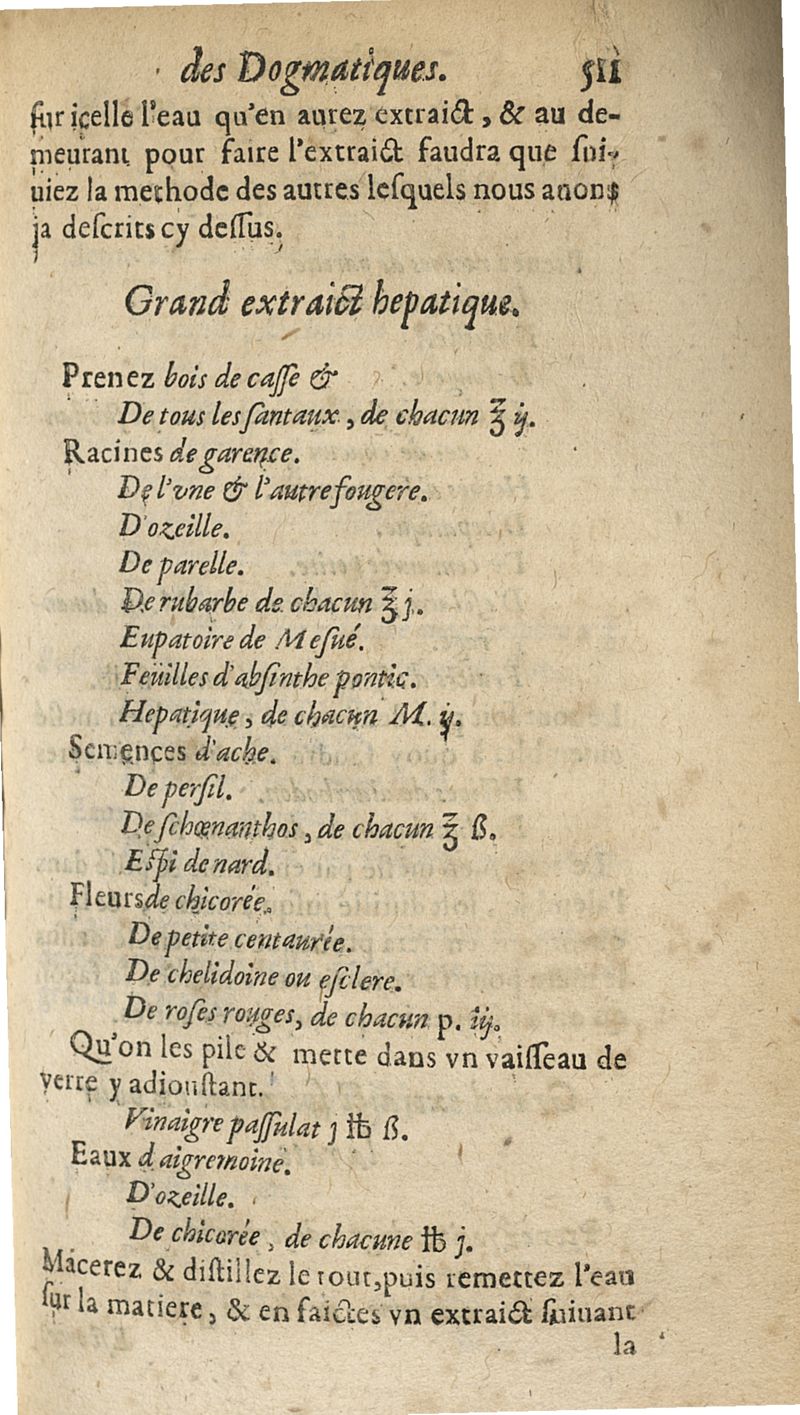 des Dogmatiques. 511
ſur icelle l'eau qu'en aurez extraict, & au de-
meurant pour faire l'extraict faudra que ſui-
uiez la methode des autres leſquels nous auons
ja deſcrits cy deſſus.
Grand extraict hepatique.
Prenez bois de caſſe &
De tous les ſantaux, de chacun ℥ ij.
Racines de garence.
De l'vne & l'autre fougere.
D'ozeille.
De parelle.
De rubarbe de chacun ℥ j.
Eupatoire de Meſué.
Feuilles d'abſinthe pontic.
Hepatique, de chacun M. ij.
Semences d'ache.
De perſil.
De ſchœnanthos, de chacun ℥ ß.
Eſpi de nard.
Fleurs de chicorée.
De petite centaurée.
De chelidoine ou eſclere.
De roſes rouges, de chacun p. iij.
Qu'on les pile & mette dans vn vaiſſeau de
verre y adiouſtant.
Vinaigre paſſulat j ℔ ß.
Eaux d'aigremoine.
D'ozeille.
De chicorée, de chacune ℔ j.
Macerez & diſtillez le tout, puis remettez l'eau
ſur la matiere, & en faictes vn extraict ſuiuant
la